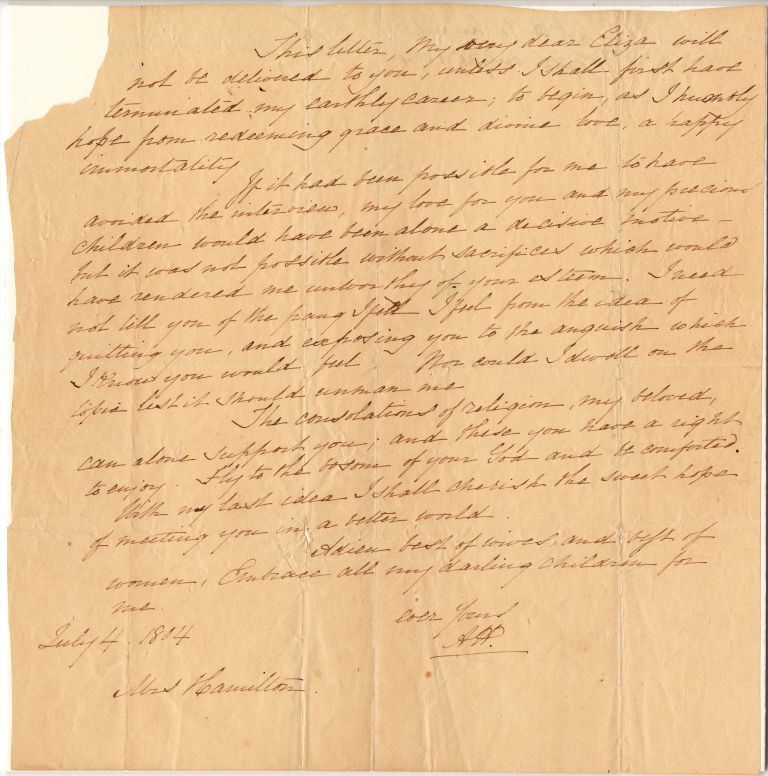 This letter, my very dear Eliza will
not be delivered to you, unless I shall first have
terminated my earthly career; to begin, as I humbly
hope from redeeming grace and divine love, a happy
immortality
If it had been possible for me to have
avoided the interview, my love for you and my precious
children would have been alone a decisive motive –
but it was not possible without sacrifices which would
have rendered me unworthy of your esteem. I need
not tell you of the pang I feel from the idea of
quitting you, and exposing you to the anguish which
I know you would feel Nor could I dwell on the
topic lest it should unman me
The consolations of religion, my beloved,
can alone support you; and these you have a right
to enjoy. Fly to the bosom of your God and be comforted.
With my last idea I shall cherish the sweet hope
of meeting you in a better world.
Adieu best of wives, and best of
women, Embrace all my darling children for
me.
ever Yours
July 4. 1804
AH.
Mrs Hamilton.